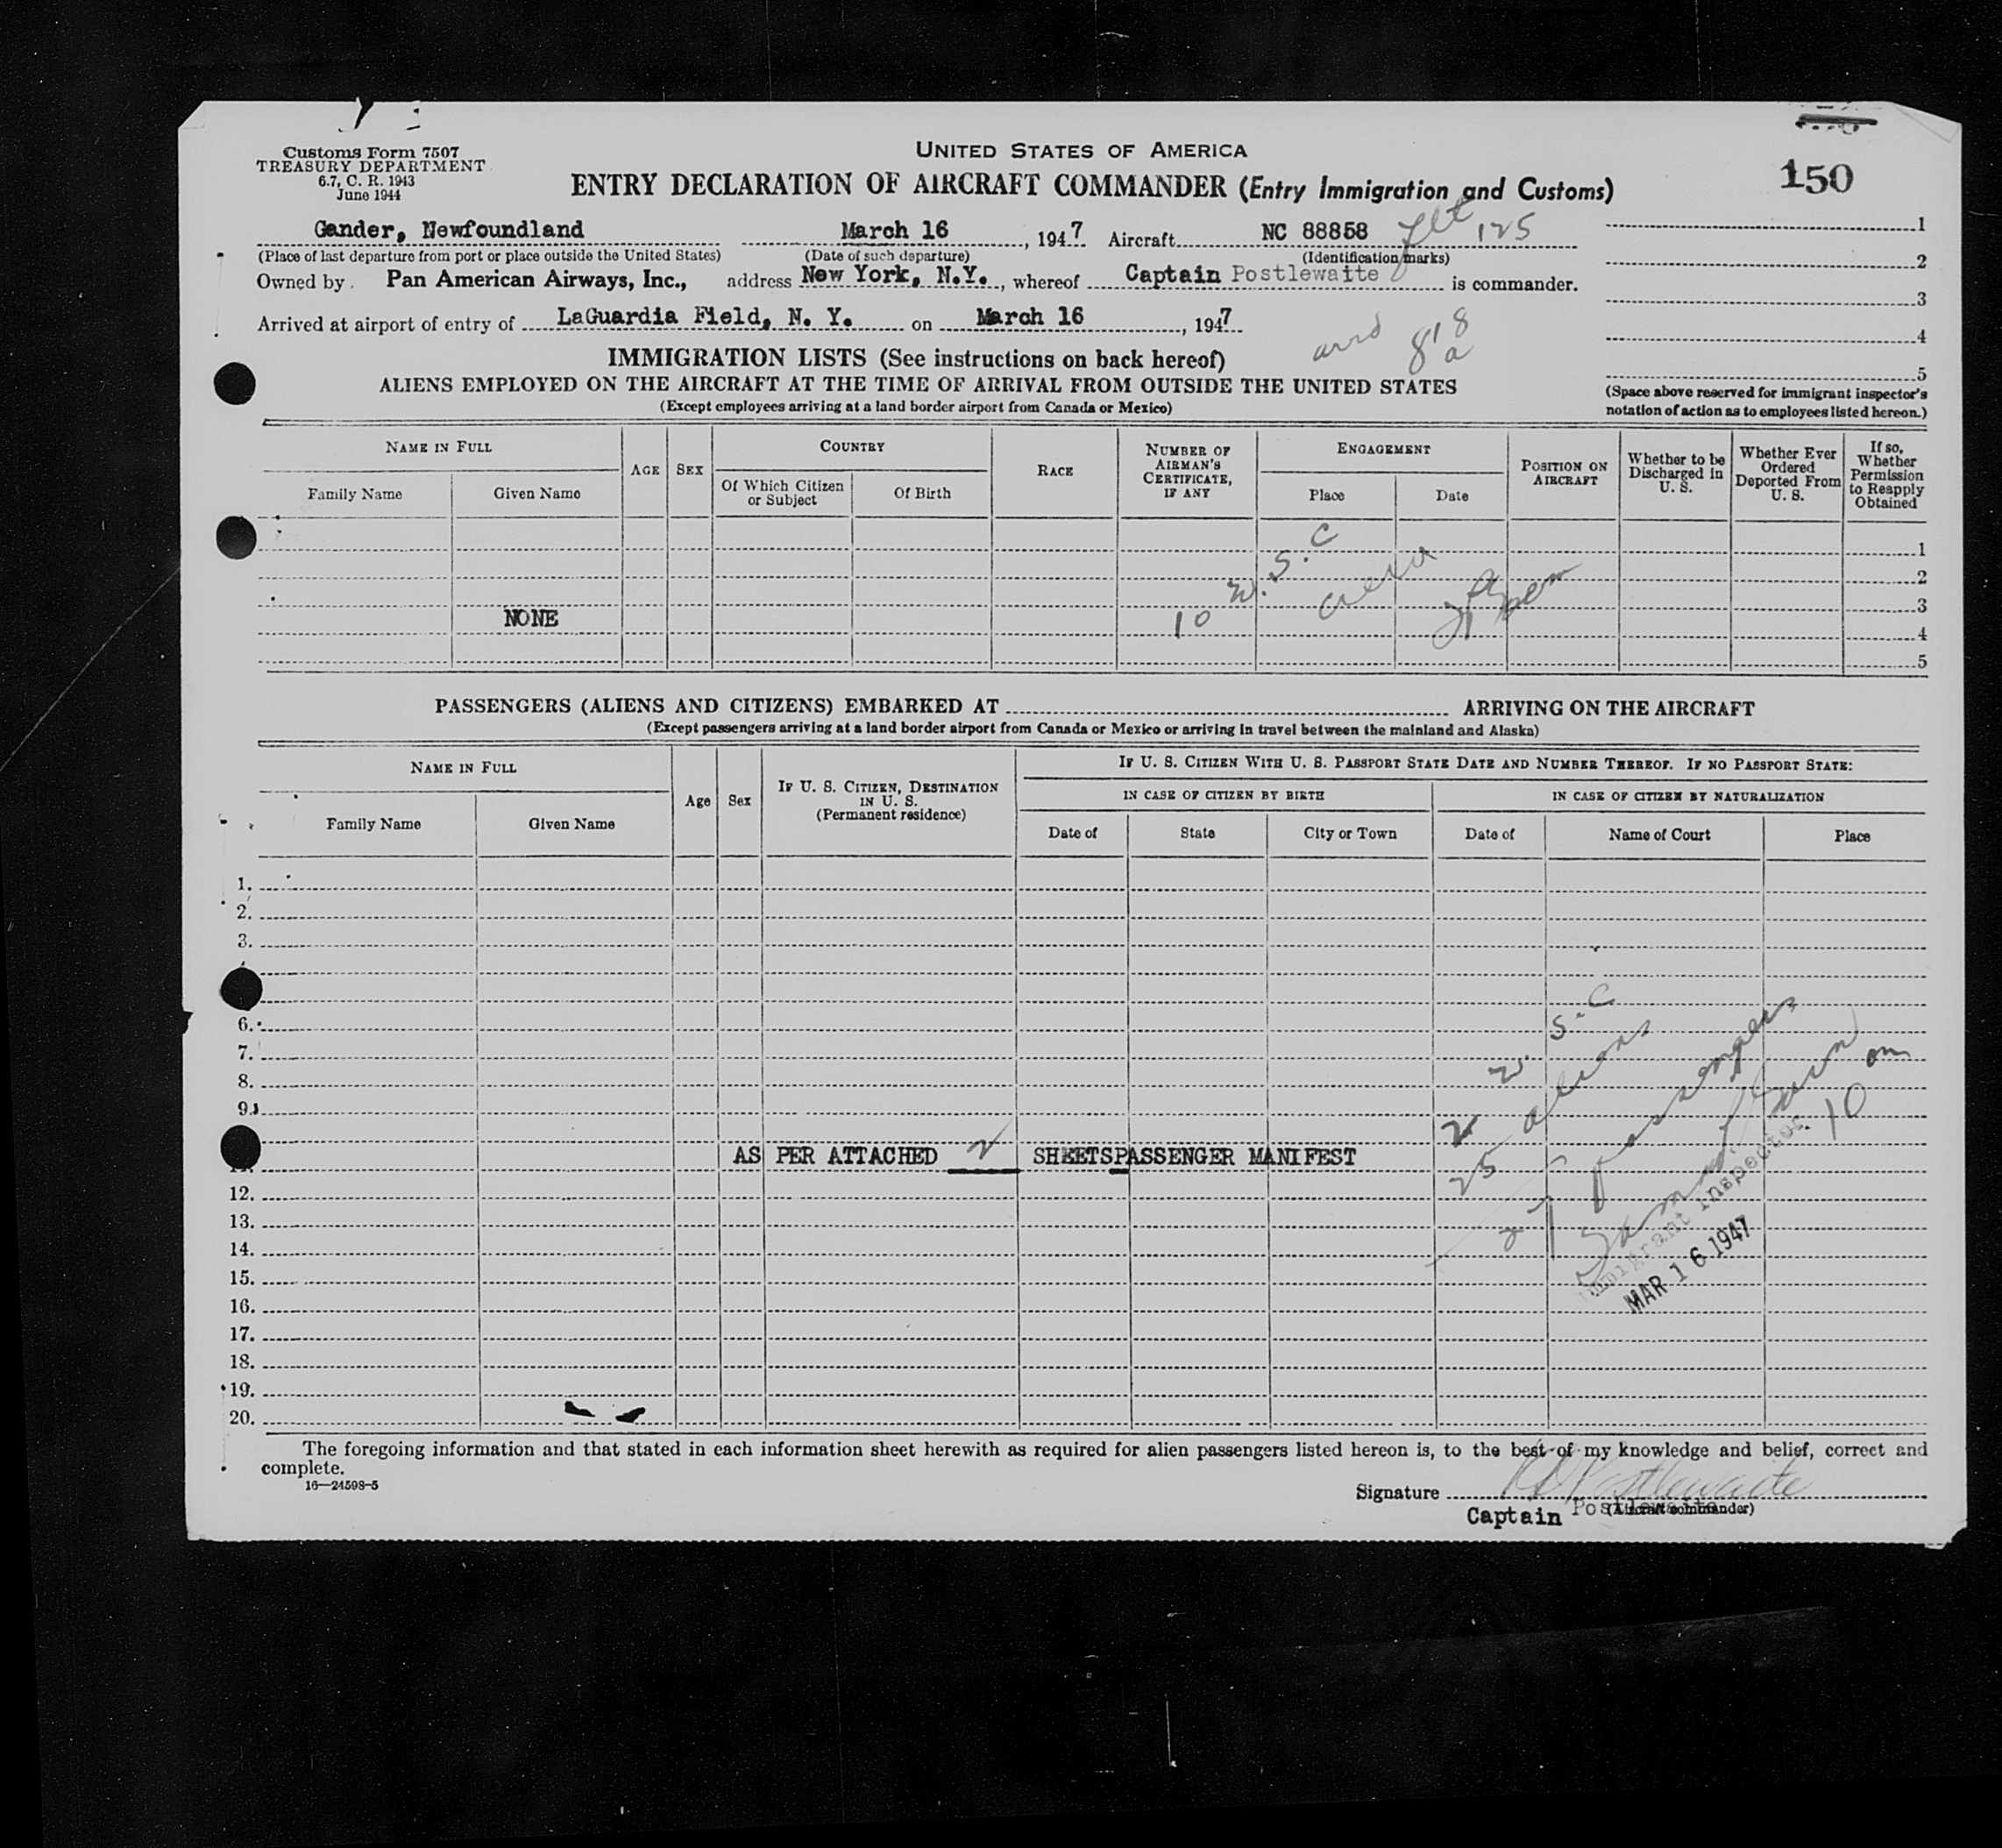 Customs Form 7507
TREASURY DEPARTMENT
6.7, C. R. 1943
June 1944
UNITED STATES OF AMERICA
ENTRY DECLARATION OF AIRCRAFT COMMANDER (Entry Immigration and Customs)
150
Gander, Newfoundland March 16, 1947 Aircraft NC 88858 Flt 125
(Place of last departure from port or place outside the United States) (Date of such departure) (Identification marks)
Owned by Pan American Airways, Inc., address New York, N.Y., whereof Captain Postlewaite is commander.
Arrived at airport of entry of LaGuardia Field, N. Y. on March 16, 1947
arrd 8 18 a
1
2
3
4
5
(Space above reserved for immigrant inspector's
notation of action as to employees listed hereon.)
IMMIGRATION LISTS (See instructions on back hereof)
ALIENS EMPLOYED ON THE AIRCRAFT AT THE TIME OF ARRIVAL FROM OUTSIDE THE UNITED STATES
(Except employees arriving at a land border airport from Canada or Mexico)
NAME IN FULL
Family Name
Given Name
AGE
SEX
COUNTRY
Of Which Citizen
or Subject
Of Birth
RACE
NUMBER OF
AIRMAN'S
CERTIFICATE,
IF ANY
ENGAGEMENT
Place
Date
POSITION ON
AIRCRAFT
Whether to be
Discharged in
U. S.
Whether Ever
Ordered
Deported From
U. S.
If so,
Whether
Permission
to Reapply
Obtained
1
2
3
4
5
NONE
10 U.S.C
crew
PASSENGERS (ALIENS AND CITIZENS) EMBARKED AT ARRIVING ON THE AIRCRAFT
(Except passengers arriving at a land border airport from Canada or Mexico or arriving in travel between the mainland and Alaska)
NAME IN FULL
Family Name
Given Name
Age
Sex
IF U. S. CITIZEN, DESTINATION
IN U. S.
(Permanent residence)
IF U. S. CITIZEN WITH U. S. PASSPORT STATE DATE AND NUMBER THEREOF. IF NO PASSPORT STATE:
IN CASE OF CITIZEN BY BIRTH
Date of
State
City or Town
IN CASE OF CITIZEN BY NATURALIZATION
Date of
Name of Court
Place
1.
2.
3.
6.
7.
8.
9.
AS PER ATTACHED 2 SHEETS PASSENGER MANIFEST
12.
13.
14.
15.
16.
17.
18.
19.
20.
2 U.S.C
25 aliens
27 passengers
10 am
Immigrant Inspector
MAR 16 1947
The foregoing information and that stated in each information sheet herewith as required for alien passengers listed hereon is, to the best of my knowledge and belief, correct and
complete.
16—24598-5
Signature Postlewaite
(Aircraft commander)
Captain Postlewaite